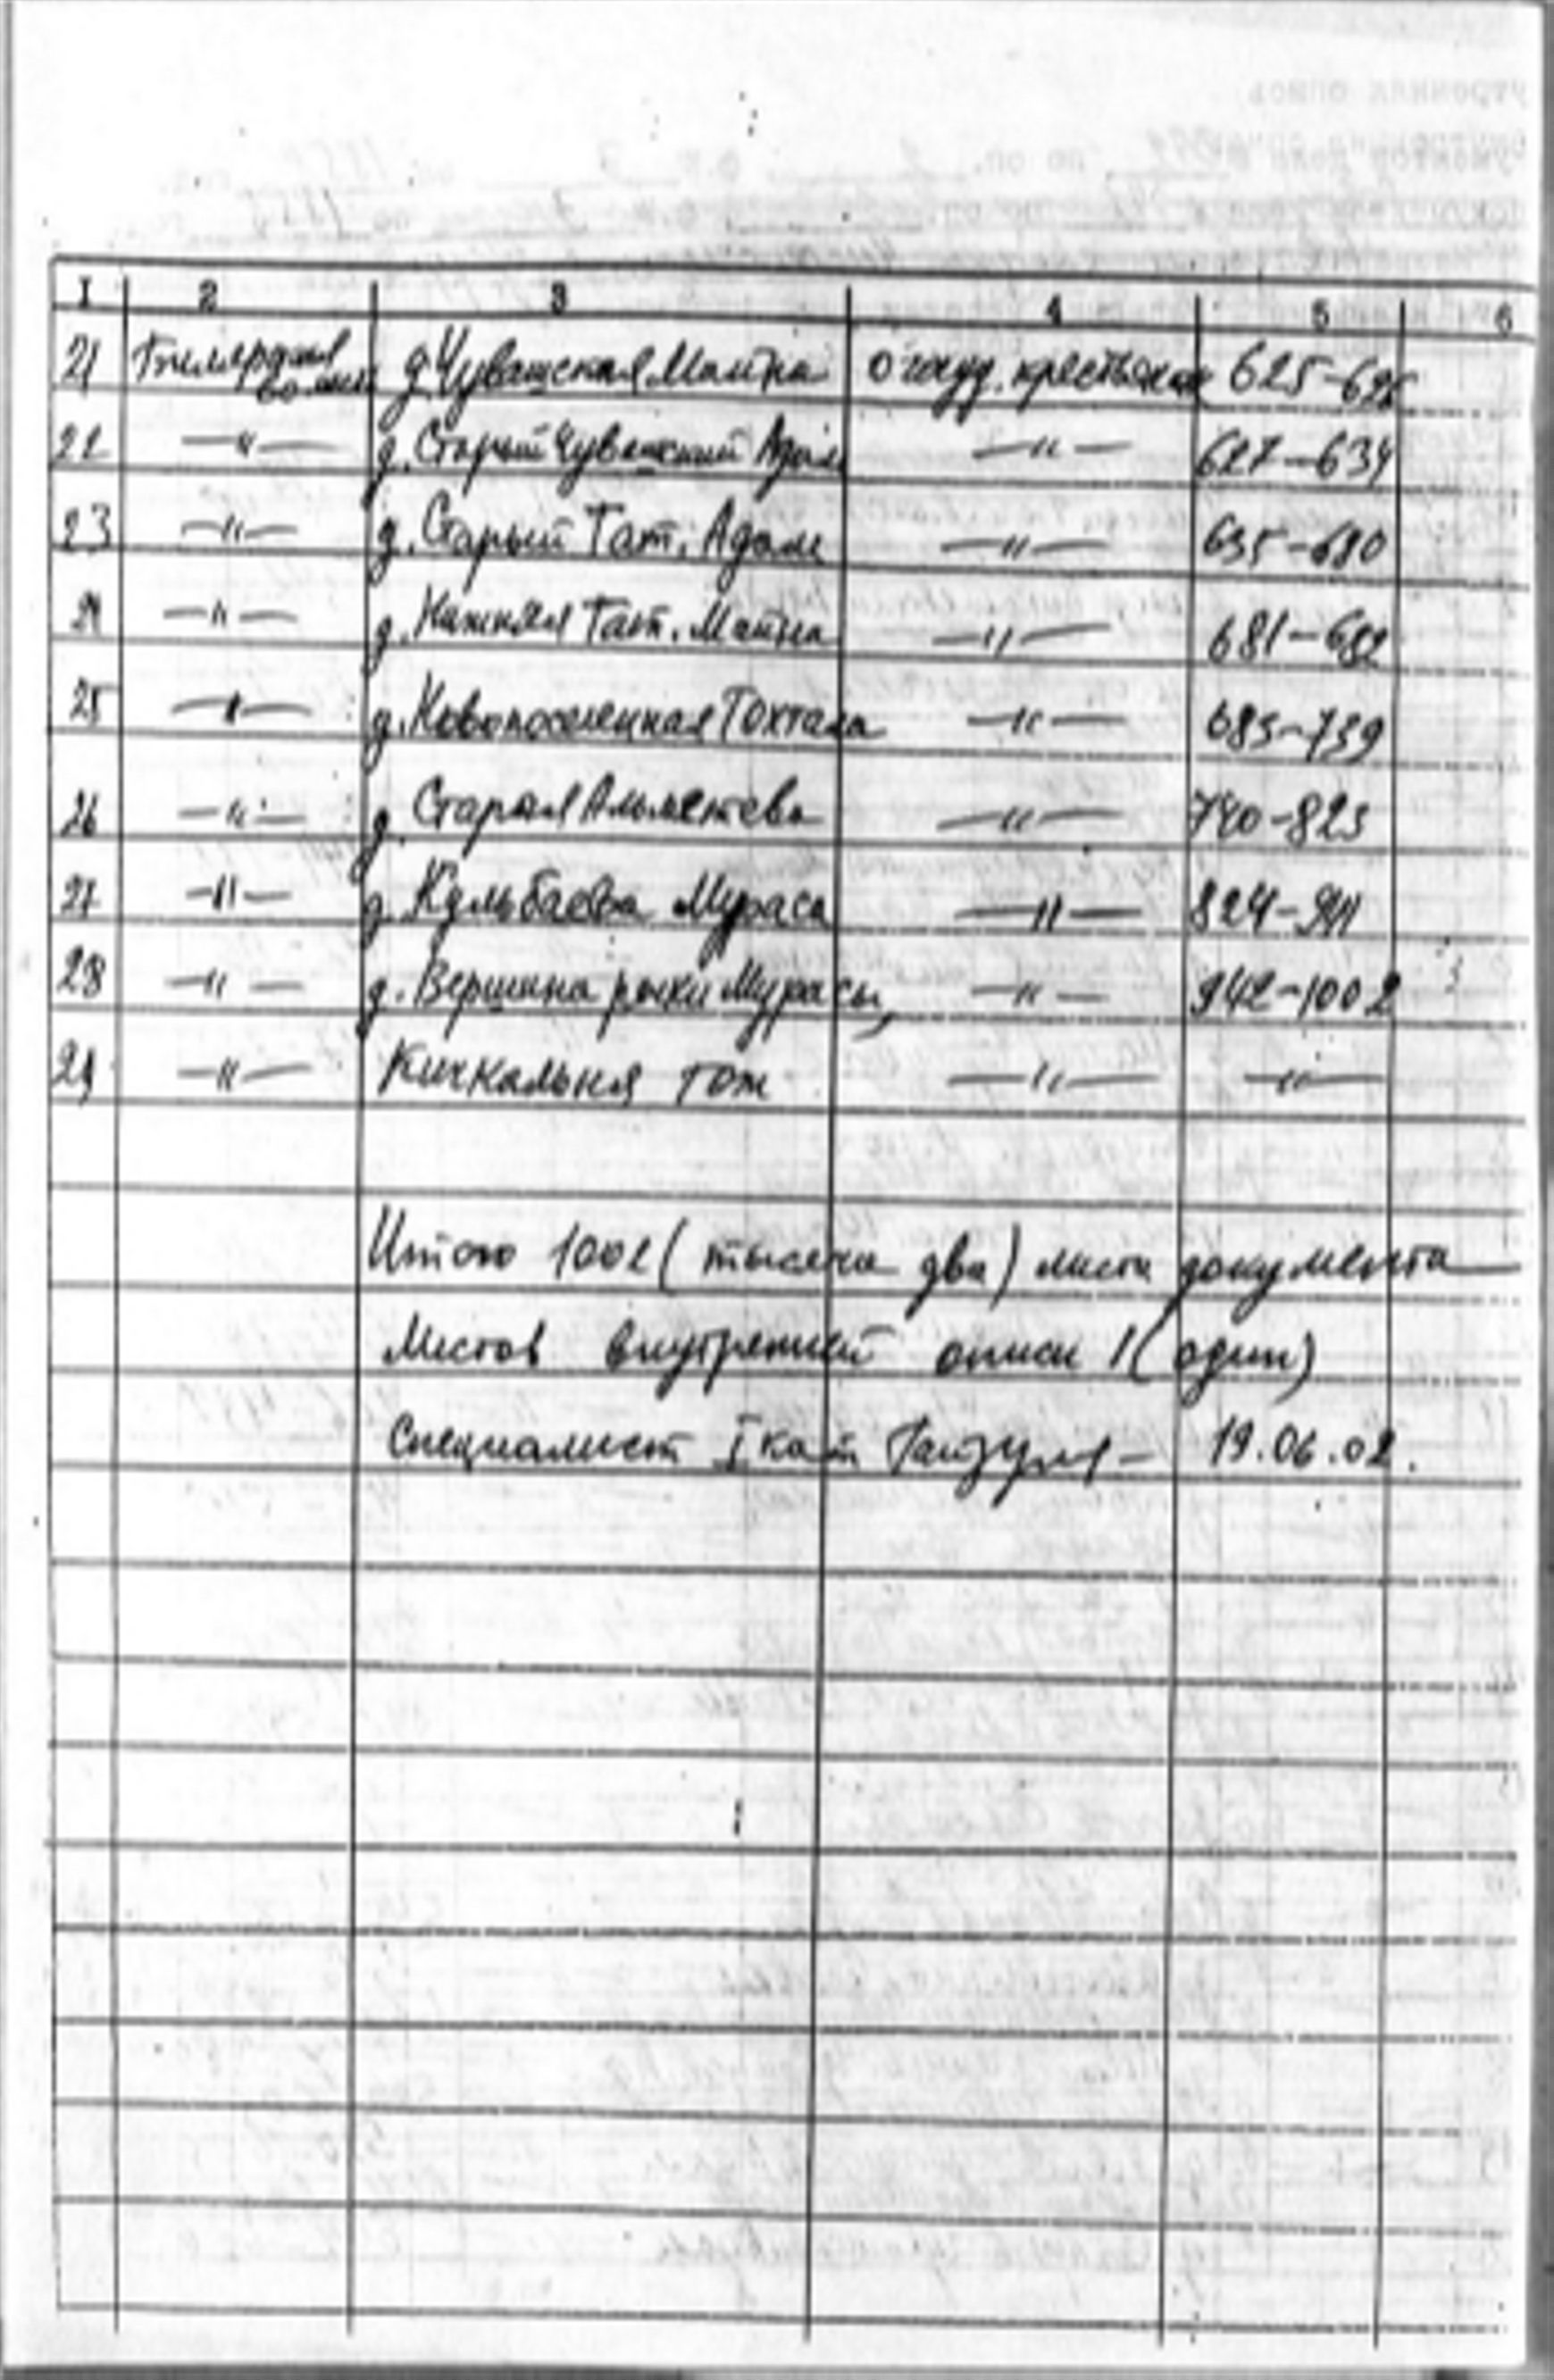 I 2 3 4 5 6
21 Билярская волость д. Чувашская Майна о госуд. крестьянах 625-626
22 —"— д. Старый Чувашский Адам —"— 627-634
23 —"— д. Старый Тат. Адам —"— 635-680
24 —"— д. Нижняя Тат. Майна —"— 681-682
25 —"— д. Новопоселенная Тохтала —"— 683-739
26 —"— д. Старая Альметева —"— 740-823
27 —"— д. Кульбаева Мураса —"— 824-941
28 —"— д. Вершина речки Мурасы, —"— 942-1002
29 —"— Кичкальня тож —"— —"—
Итого 1002 (тысяча два) листа документа
Листов внутренней описи 1 (один)
Специалист I кат 19.06.02.